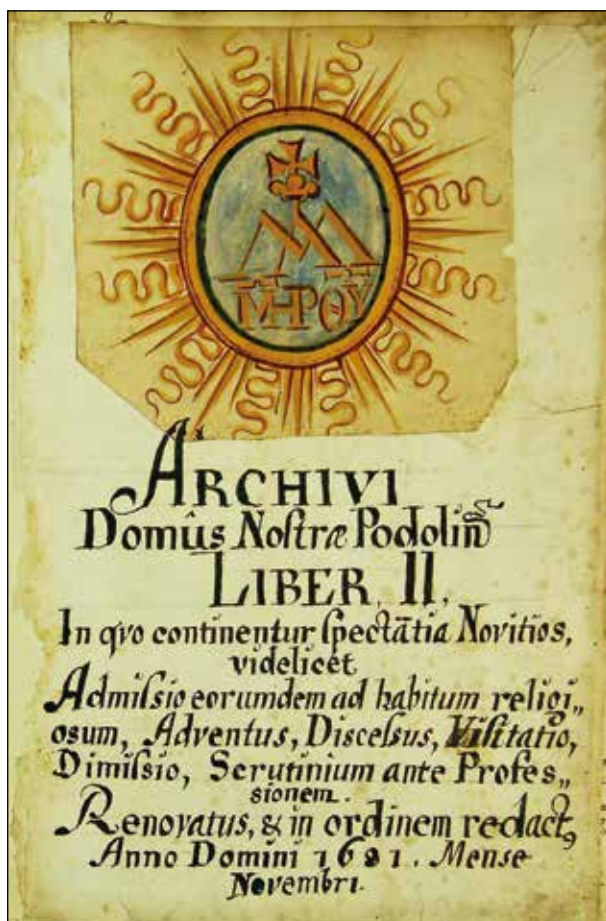 ΜΡ ΘΥ
ARCHIVI
Domûs Noſtræ Podolin͠s
LIBER. II.
In qvo continentur ſpectãtia Novitios,
videlicet
Admiſsio eorumdem ad habitum religi„
osum, Adventus, Diſceſsus, Viſitatio,
Dimiſsio, Scrutinium ante Profes„
sionem.
Renovatus, & in ordinem redactꝰ
Anno Domini 1681. Mense
Novembri.